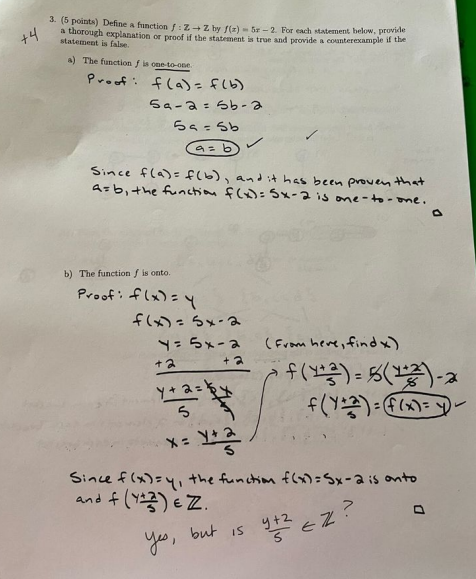 +4
3. (5 points) Define a function f : Z → Z by f(x) = 5x − 2. For each statement below, provide
a thorough explanation or proof if the statement is true and provide a counterexample if the
statement is false.
a) The function f is one-to-one.
Proof: f(a) = f(b)
5a-2 = 5b-2
5a = 5b
a = b ✓ ✓
Since f(a) = f(b), and it has been proven that
a=b, the function f(x) = 5x-2 is one-to-one. □
b) The function f is onto.
Proof: f(x) = y
f(x) = 5x-2
y = 5x-2 (From here, find x)
+2 +2
y+2 = 5x
5 5
x = y+2/5
f(y+2/5) = 5(y+2/5)-2
f(y+2/5) = f(x) = y ✓
Since f(x)=y, the function f(x)=5x-2 is onto
and f(y+2/5) ∈ Z. □
yes, but is y+2/5 ∈ Z?